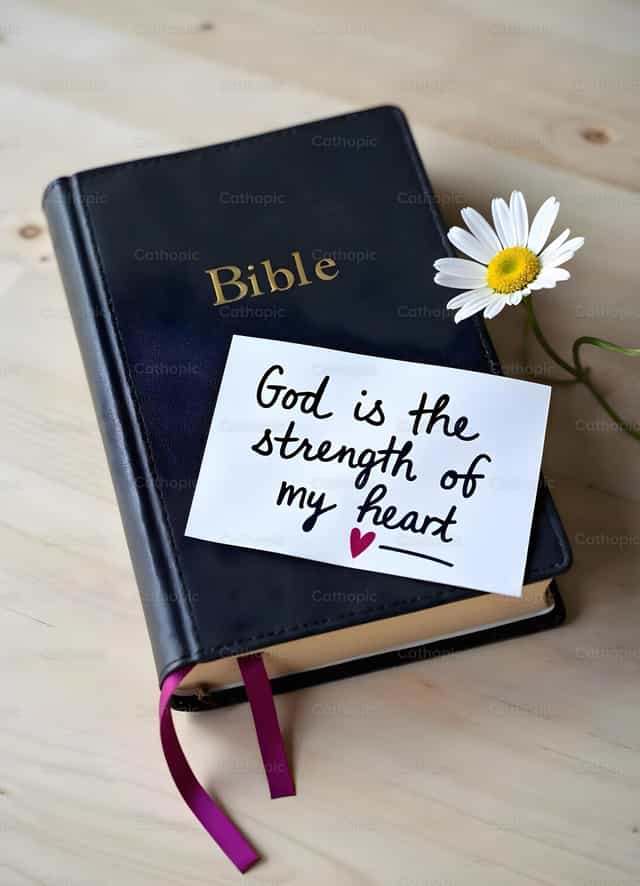 Bible
God is the
strength of
my heart
Cathopic